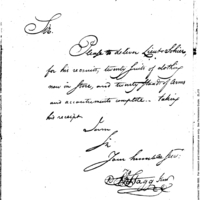 Sir.
Please to deliver Lieut.
for his recruits, twenty suits of clothing
now in store, and twenty stand of arms
and accoutrements complete. taking
his receipt
I am
Sir
Your humble Ser.